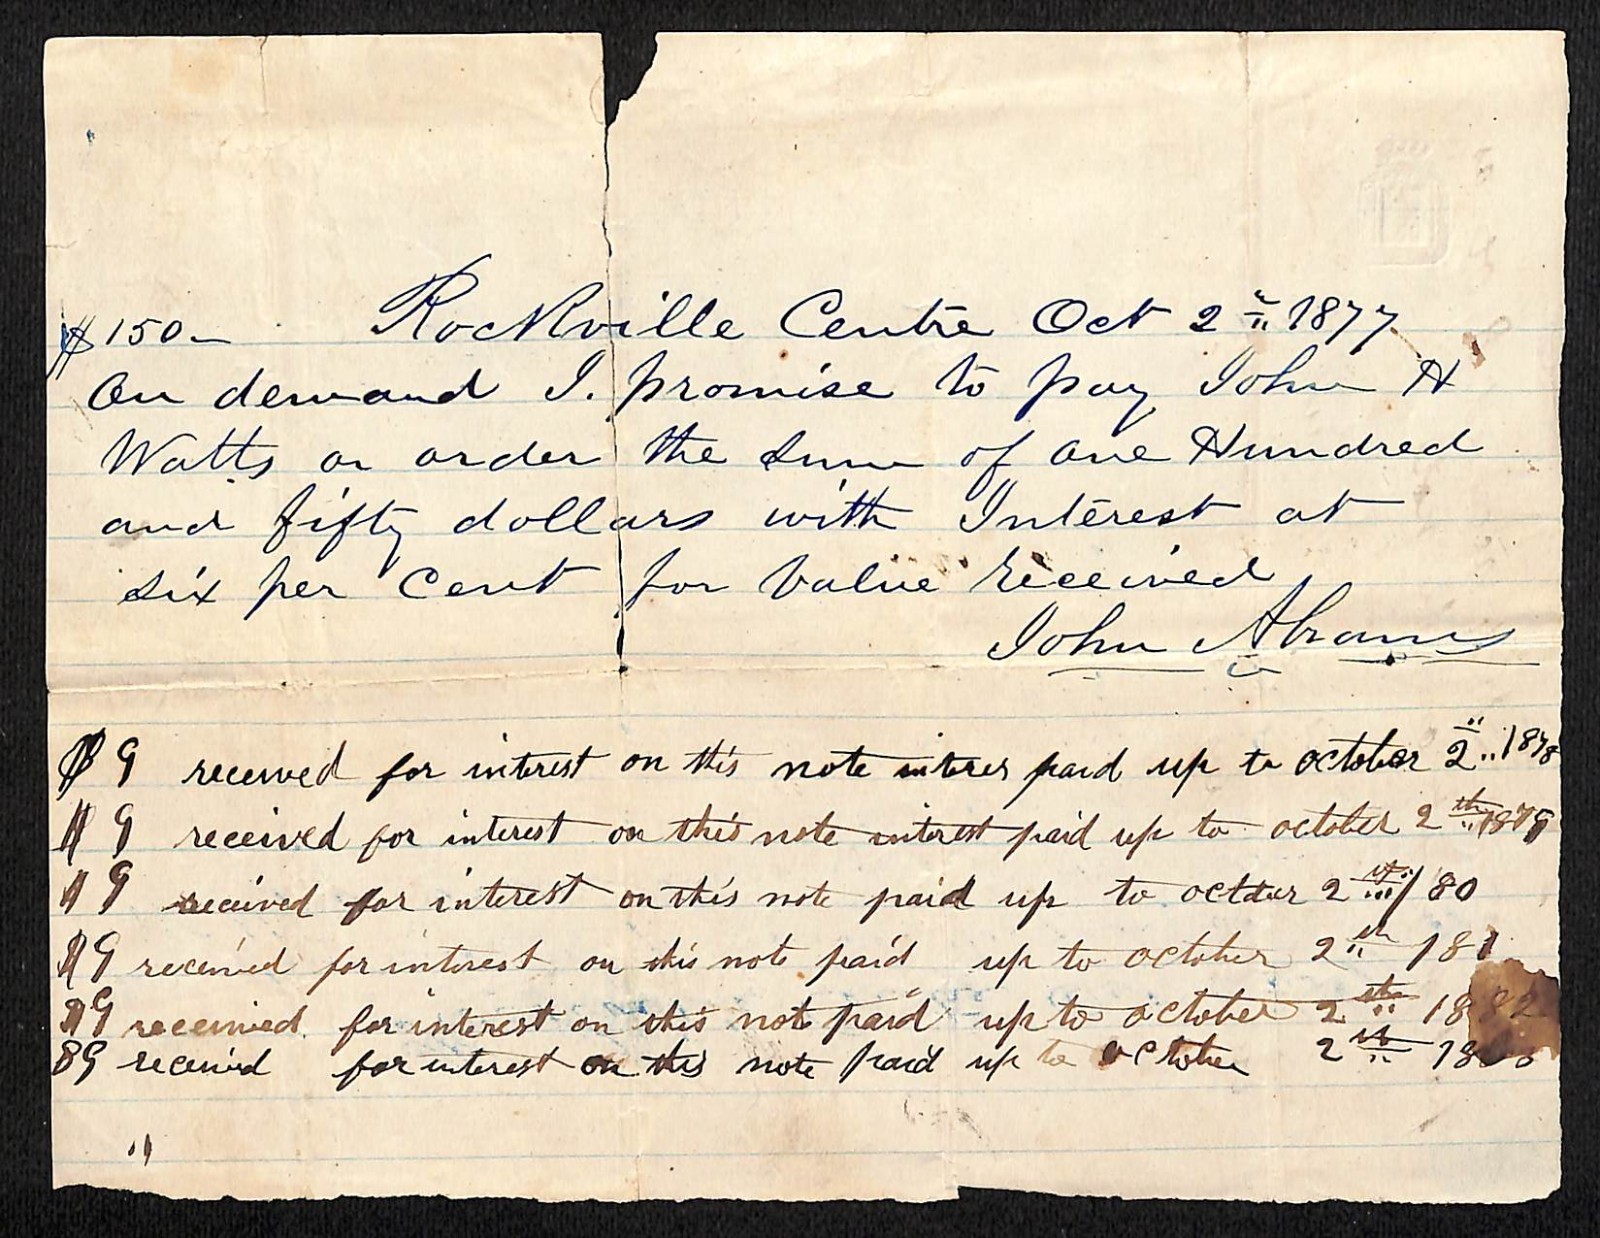 $150– Rockville Centre Oct 2" 1877
On demand I. promise to pay John H
Watts or order the sum of one Hundred
and fifty dollars with Interest at
six per Cent for Value Received
John Abrams
$9 received for interest on this note interes paid up to october 2 1878
$9 received for interest on this note interest paid up to october 2th 1879
$9 received for interest on this note paid up to octber 2th / 80
$9 received for interest on this note paid up to october 2th 181
$9 received for interest on this note paid up to october 2th 1882
$9 received for interest on this note paid up to october 2th